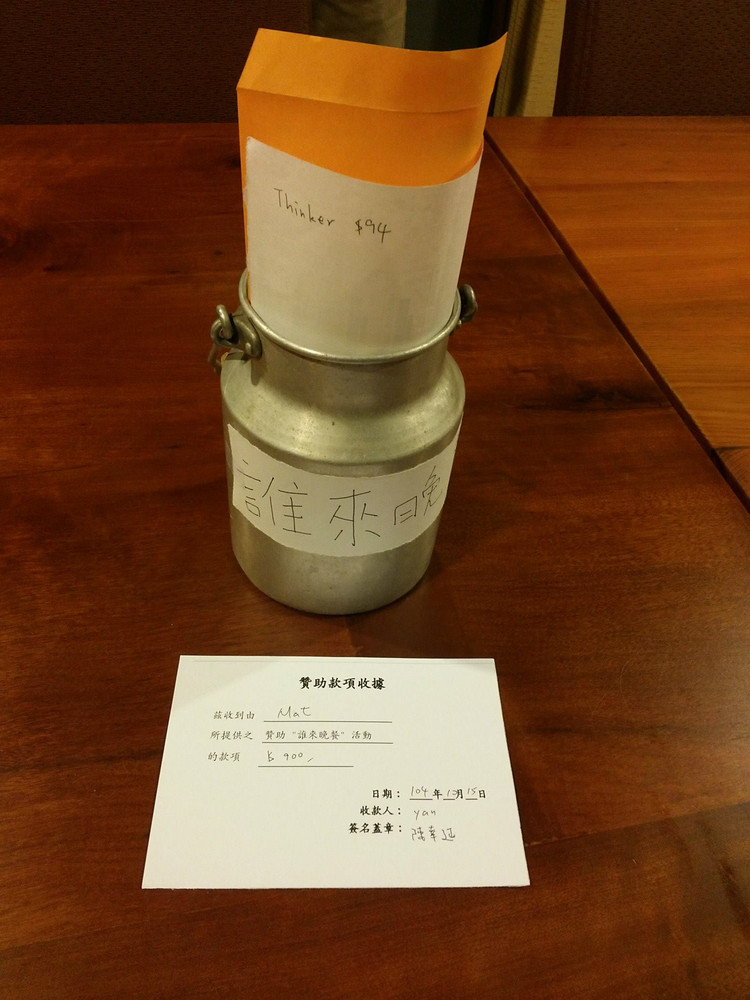 Thinker $94
誰來晚
贊助款項收據
茲收到由 Mat
所提供之 贊助"誰來晚餐"活動
的款項 $ 900/
日期：104年12月15日
收款人：yan
簽名蓋章：陳